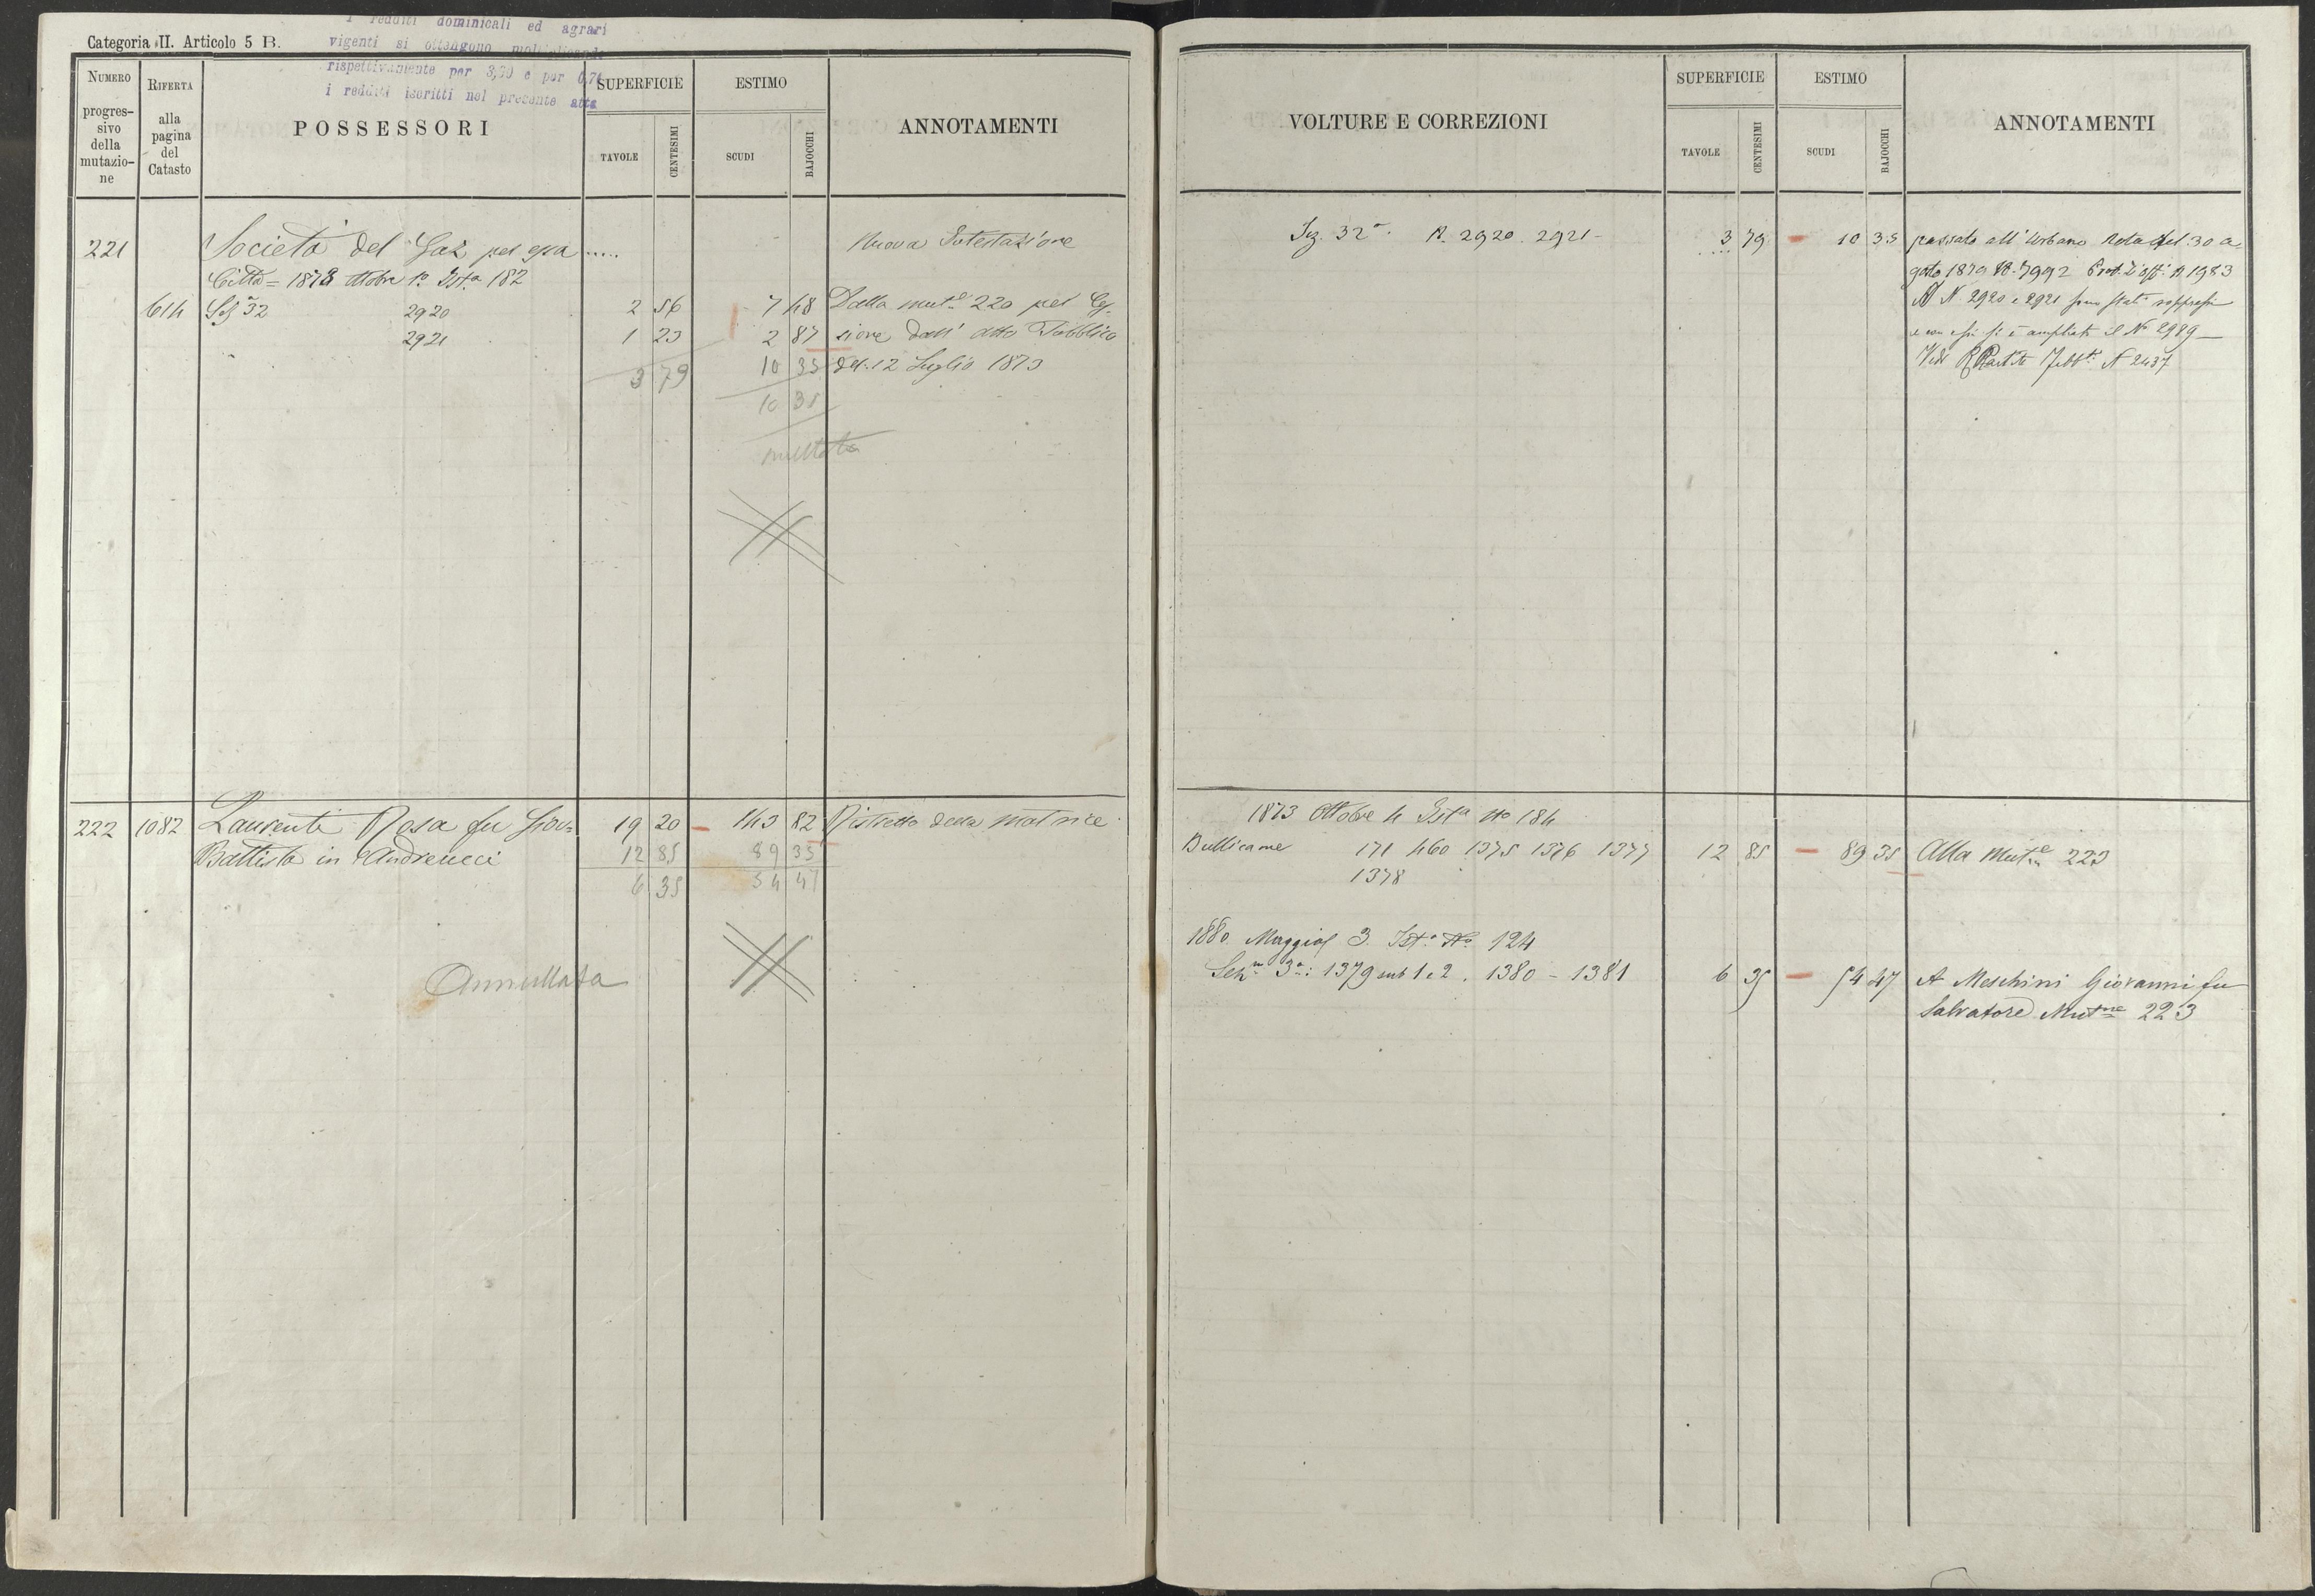 Categoria II. Articolo 5 B.
I redditi dominicali ed agrari
vigenti si ottengono moltiplicando
rispettivamente per 3,30 e per 0,74
i redditi iscritti nel presente atto
NUMERO
progres-
sivo
della
mutazio-
ne
RIFERTA
alla
pagina
del
Catasto
POSSESSORI
SUPERFICIE
TAVOLE
CENTESIMI
ESTIMO
SCUDI
BAJOCCHI
ANNOTAMENTI
221 Società del Gaz per essa ..... Nuova Intestazione
Città = 1873 Ottobre 1º Istª 182
614 Sez 32 2920 2 56 7 48 Dalla mutne 220 per Ces-
2921 1 23 2 87 sione dall' atto Pubblico
3 79 10 35 del 12 Luglio 1873
10 35
222 1082 Laurenti Rosa fu Giov= 19 20 143 82 Ristretto della matrice
Battista in Andreucci 12 85 89 35
6 35 54 47
Annullata
VOLTURE E CORREZIONI
SUPERFICIE
TAVOLE
CENTESIMI
ESTIMO
SCUDI
BAJOCCHI
ANNOTAMENTI
Sez. 32ª. N. 2920. 2921 - 3 79 10 35 passato all' Urbano Nota del 30 a
gosto 1879 N. 7992 Prot. d'Uff. N 1983
N. 2920 e 2921 sono stati soppressi
e con essi si è ampliato il Nº 2989 —
Vedi N 2437
1873 Ottobre 4 Istª No 184
Bullicame 171 460 1375 1376 1377 12 85 89 35 Alla Mutne 223
1378
1880. Maggio 3. Istª Nº 124
Sezne 3ª: 1379 sub 1 e 2. 1380 - 1381 6 35 54 47 A Meschini Giovanni fu
Salvatore Mutne 223